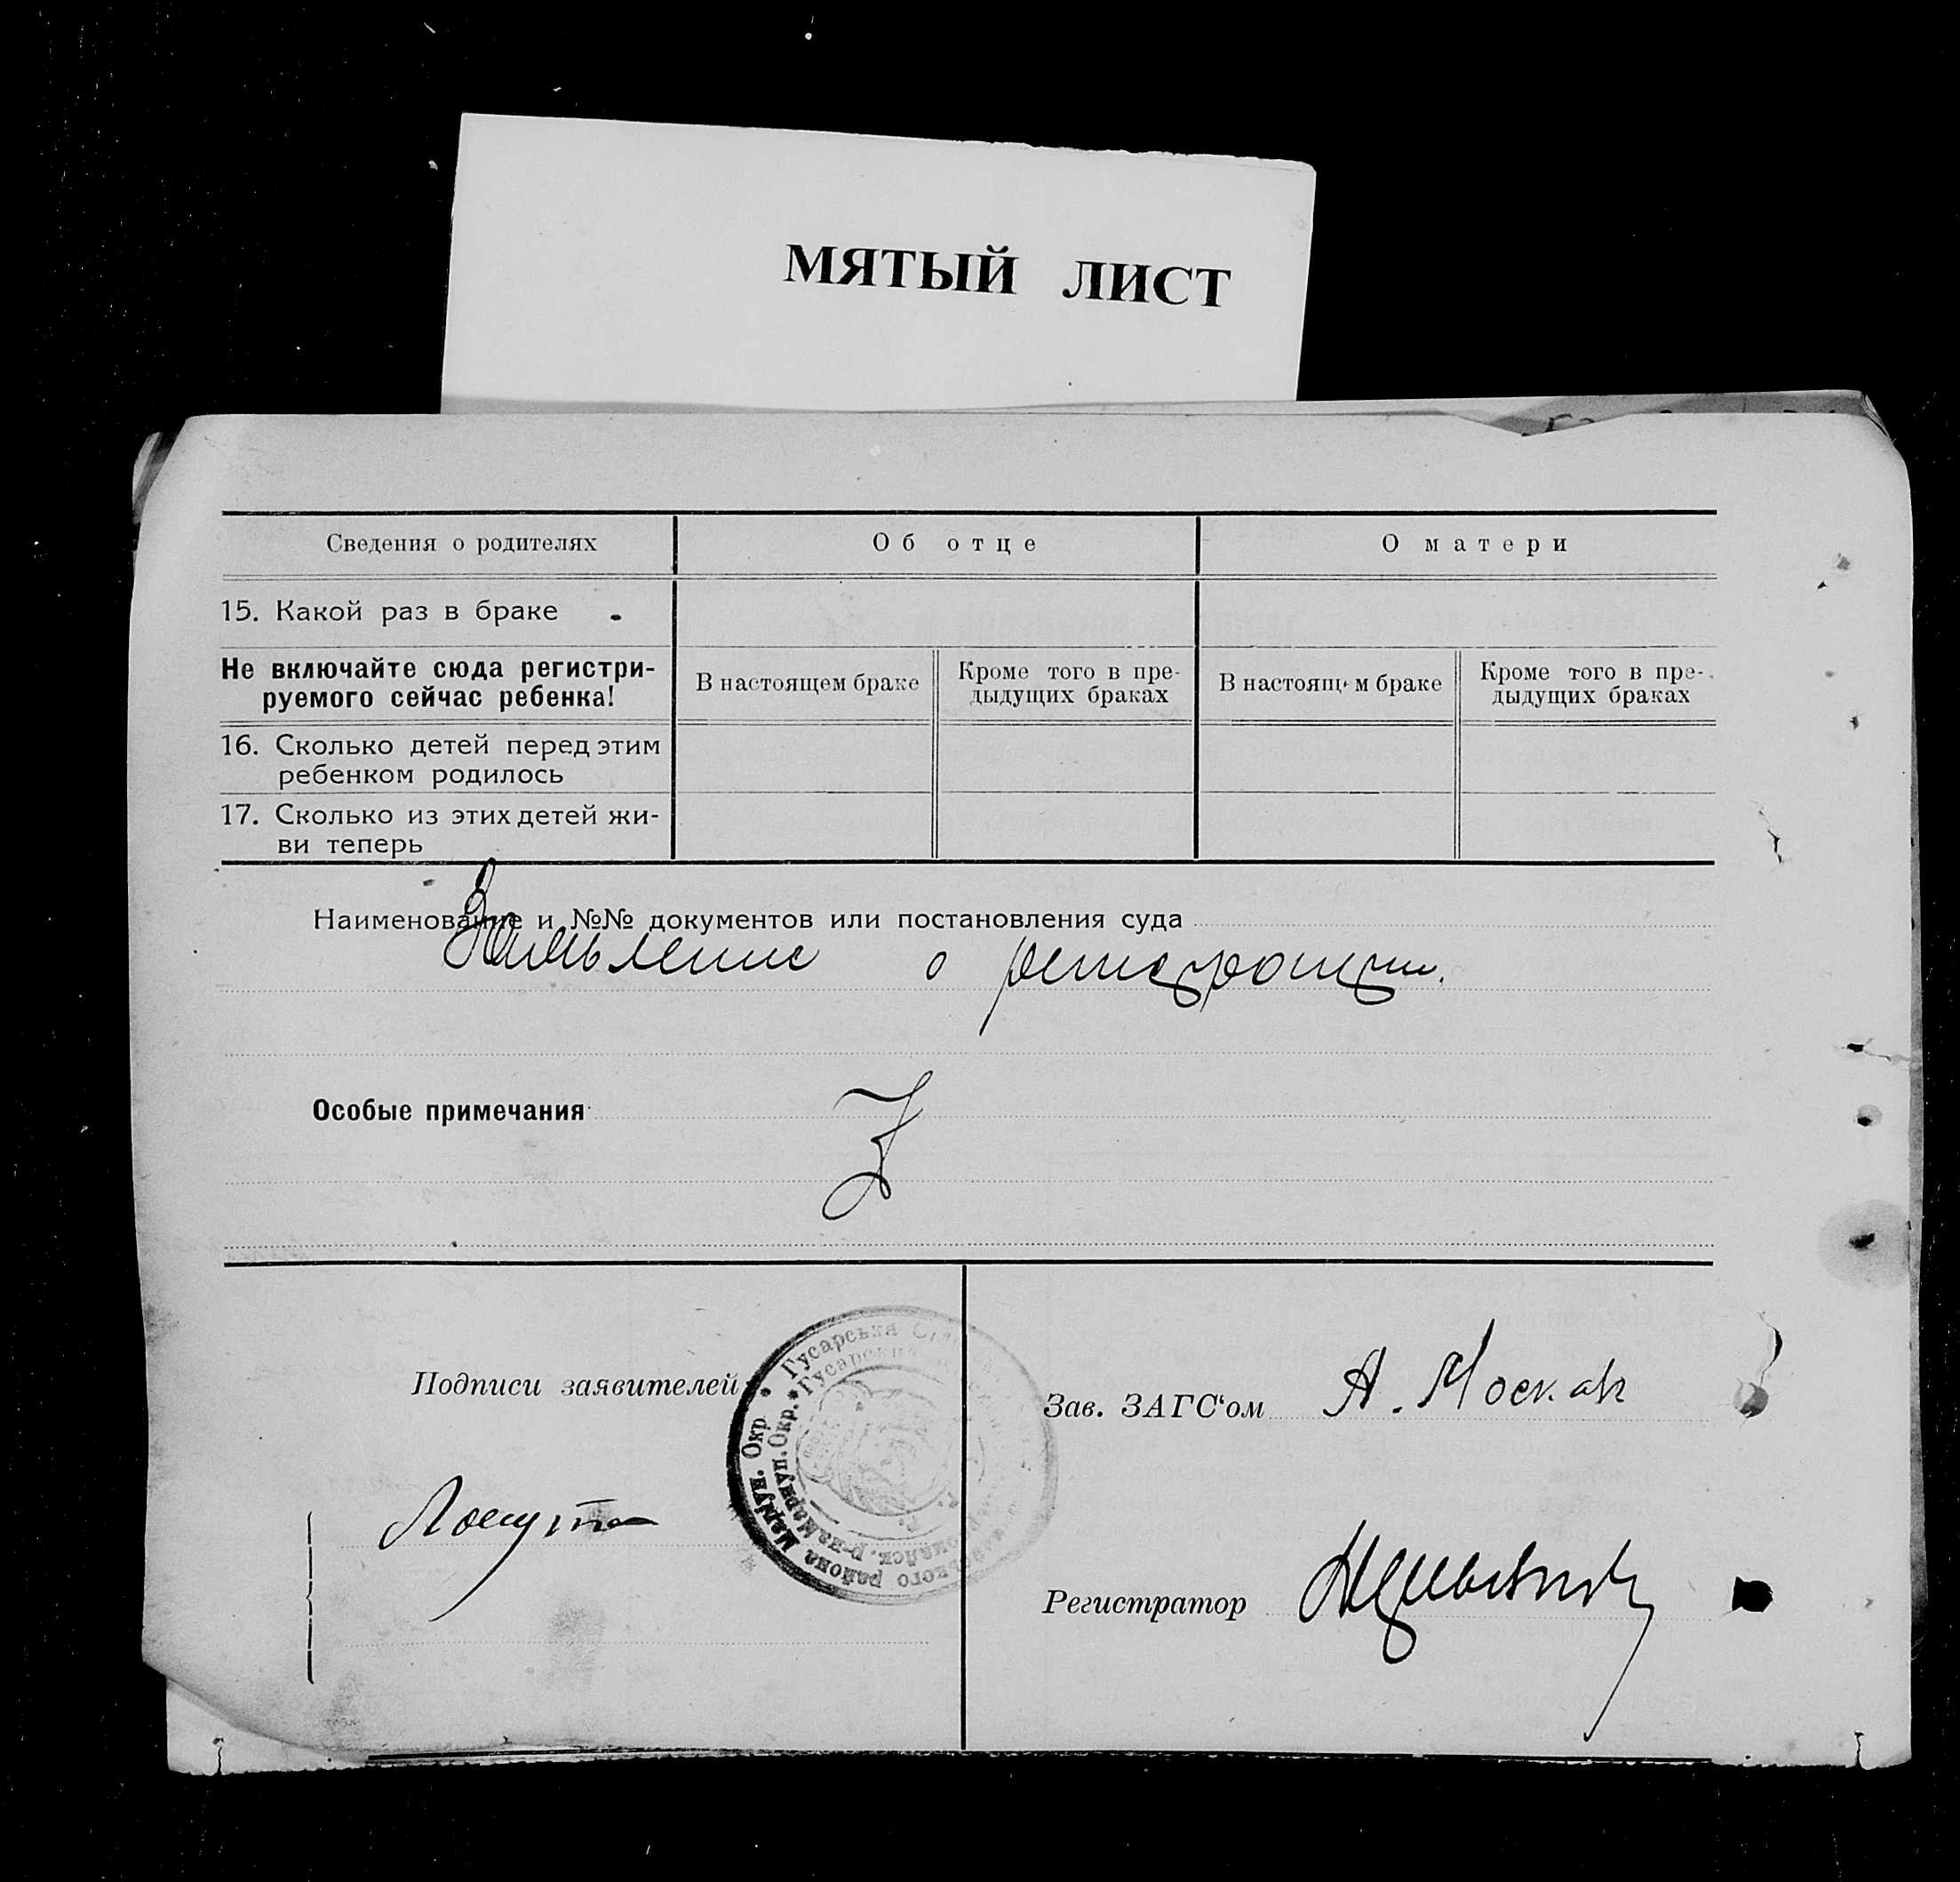 МЯТЫЙ ЛИСТ
Сведения о родителях
Об отце
О матери
15. Какой раз в браке
Не включайте сюда регистри-
руемого сейчас ребенка!
В настоящем браке
Кроме того в пре-
дыдущих браках
В настоящ м браке
Кроме того в пре-
дыдущих браках
16. Сколько детей перед этим
ребенком родилось
17. Сколько из этих детей жи-
ви теперь
Наименование и №№ документов или постановления суда
Заявление о регистрации.
Особые примечания
Z
Подписи заявителей
Гусарська
Гусарская
района Маріуп. Окр
р-на Мариуп. Окр.
Зав. ЗАГС'ом А.
Регистратор